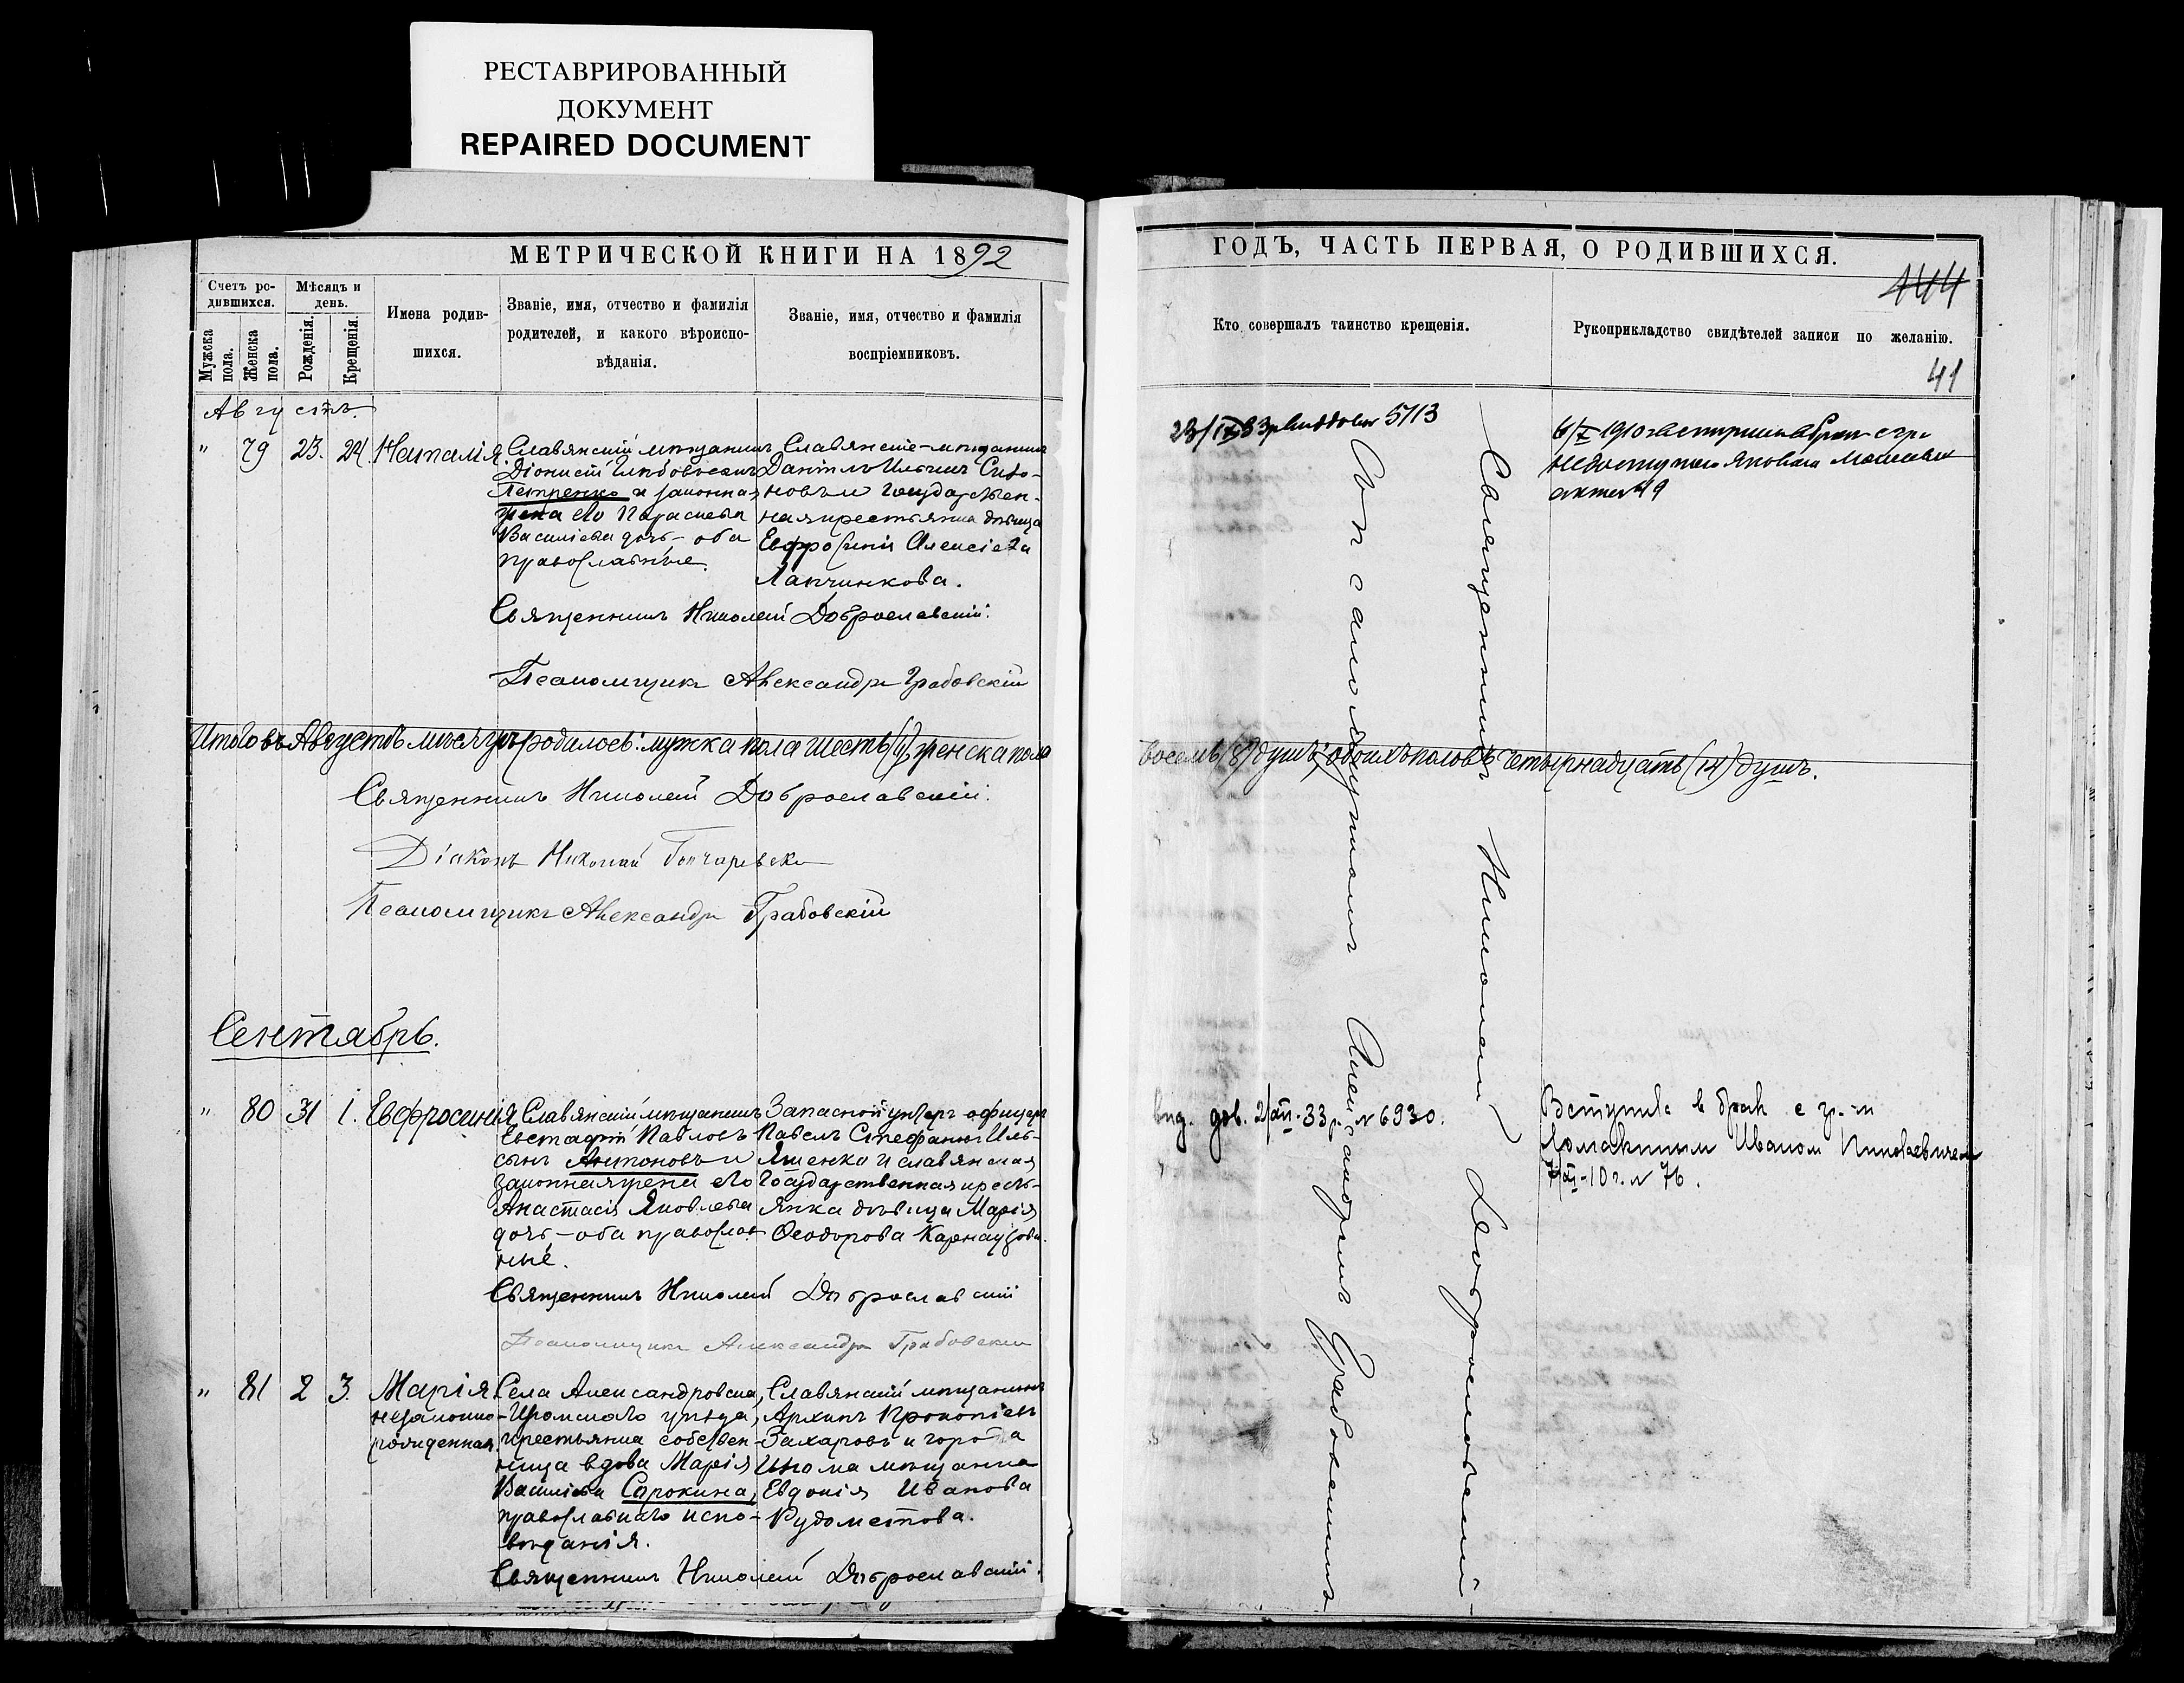 РЕСТАВРИРОВАННЫЙ
ДОКУМЕНТ
REPAIRED DOCUMENT
МЕТРИЧЕСКОЙ КНИГИ НА 1892
Счетъ ро-
дившихся.
Мѣсяцъ и
день.
Мужска
пола.
Женска
пола.
Рожденія.
Крещенія.
Имена родив-
шихся.
Званіе, имя, отчество и фамилія
родителей, и какого вѣроиспо-
вѣданія.
Званіе, имя, отчество и фамилія
воспріемниковъ.
Августъ.
" 79 23. 24. Наталія
Славянскій мѣщанинъ
Діонисій Глѣбовъ
Петренко и законная
жена его Параскева
Василіева дочь - оба
православные.
Славянскіе - мѣщанинъ
Даніилъ Ильинъ
новъ и государствен-
ная крестьянка дѣвица
Евфросинія Алексіева
Лапчинкова.
Священникъ Николай Доброславскій.
Псаломщикъ Александръ Грабовскій
Итого въ Августѣ мѣсяцѣ родилось: мужска пола шесть (6), женска пола
Священникъ Николай Доброславскій.
Діаконъ Николай Гончаревскій
Псаломщикъ Александръ Грабовскій
Сентябрь.
" 80 31 1. Евфросинія
Славянскій мѣщанинъ
Евстафій Павловъ
сынъ Антоновъ и
законная жена его
Анастасія Яковлева
дочь - оба православ-
ные.
Запасной унтеръ-офицеръ
Павелъ Стефановъ Иль-
яшенко и славянская
государственная кресть-
янка дѣвица Марія
Ѳеодорова Карнаухова.
Священникъ Николай Доброславскій
Псаломщикъ Александръ Грабовскій
" 81 2 3. Марія
незаконно-
рожденная.
Села Александровка,
Изюмскаго уѣзда,
крестьянка собствен-
ница вдова Марія
Василіева Сорокина,
православнаго испо-
вѣданія.
Славянскій мѣщанинъ
Архипъ Прокопіевъ
Захаровъ и города
Изюма мѣщанка
Евдокія Иванова
Рудометова.
Священникъ Николай Доброславскій.
ГОДЪ, ЧАСТЬ ПЕРВАЯ, О РОДИВШИХСЯ.
144
Кто совершалъ таинство крещенія.
Рукоприкладство свидѣтелей записи по желанію.
41
5713
6/X 1910 г. вступила в брак с гр.
акт № 49
Священникъ Николай Доброславскій
Съ псаломщикомъ Александромъ Грабовскимъ
восемь (8) душъ; обоихъ половъ четырнадцать (14) душъ.
вид. дов. 2/XII-33 р. № 6930.
Вступила в брак с гр-м
Ломакиным Иваном Николаевичем
7/XI-10 г. № 76.